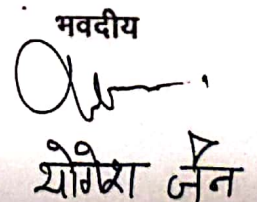 भवदीय
योगेश जैन